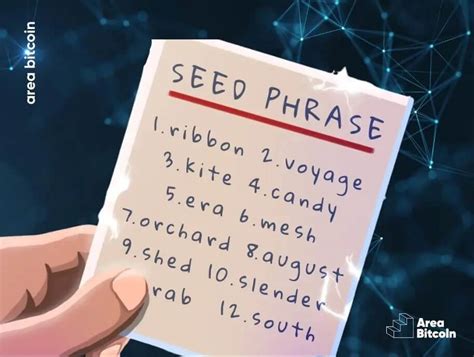 area bitcoin
SEED PHRASE
1.ribbon 2.voyage
3.kite 4.candy
5.era 6.mesh
7.orchard 8.august
9.shed 10.slender
rab 12.south
Area
Bitcoin